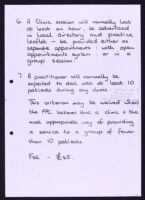 6. A Clinic session will normally last
at least an hour, be advertised
in local directory and practice
leaflet - be provided either as
separate appointments - with open
appointments system - or in
a group session.
7. A practitioner will normally be
expected to deal with at least 10
patients during any clinic.
This criterion may be waived when
the FPC believes that a clinic is the
most appropriate way of providing
a service to a group of fewer
than 10 patients.
Fee - £45.